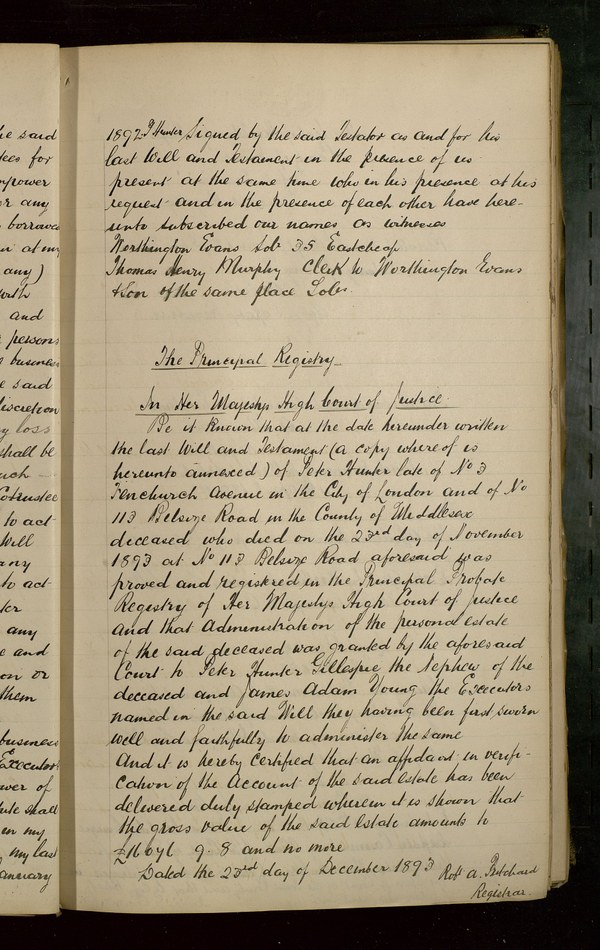 he said
tees for
mpower
or any
borrowed
n at my
any)
with
and
persons
business
e said
discretion
y loss
shall be
uch
Cotrustee
to act
Will
any
to act
ter
any
e and
on or
them
business
Executors
wer of
ute shall
in my
my last
anuary
1892 P Hunter Signed by the said Testator as and for his
last Will and Testament in the presence of us
present at the same time who in his presence at his
request and in the presence of each other have here-
unto subscribed our names as witnesses
Worthington Evans Solr 35 Eastcheap
Thomas Henry Murphy Clerk to Worthington Evans
& Son of the same place Solrs
The Principal Registry
In Her Majestys High Court of Justice
Be it known that at the date hereunder written
the last Will and Testament (a copy whereof is
hereunto annexed) of Peter Hunter late of No 3
Fenchurch Avenue in the City of London and of No
113 Belsize Road in the County of Middlesex
deceased who died on the 23rd day of November
1893 at No 113 Belsize Road aforesaid was
proved and registered in the Principal Probate
Registry of Her Majestys High Court of Justice
And that Administration of the personal estate
of the said deceased was granted by the aforesaid
Court to Peter Hunter Gillespie the Nephew of the
deceased and James Adam Young the Executors
named in the said Will they having been first sworn
well and faithfully to administer the same
And it is hereby Certified that an affidavit in verifi-
cation of the Account of the said estate has been
delivered duly stamped wherein it is shown that
the gross value of the said estate amounts to
9. 8 and no more
Dated the 23rd day of December 1893 Robt A. Pritchard
Registrar.